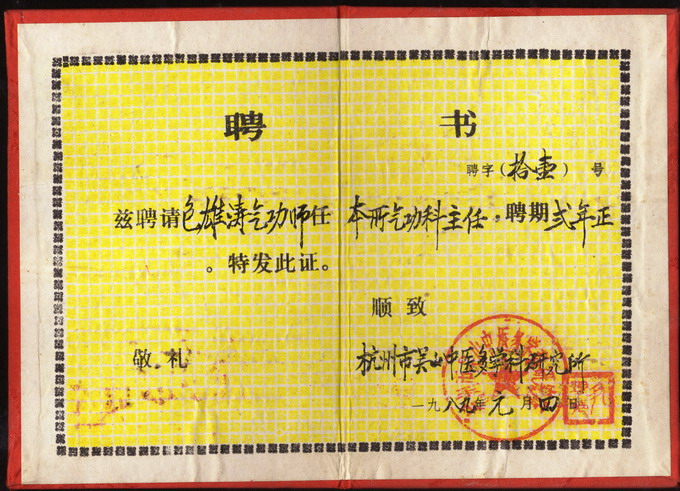 聘 书
聘字(拾壹)号
兹聘请包雄涛气功师任 本所气功科主任,聘期弍年正
。特发此证。
顺致
敬礼 杭州市吴山中医多学科研究所
一九八九年元月四日